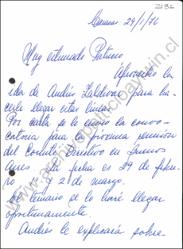 Caracas 29/1/76
Muy estimado Patricio
Aprovecho la
ida de Andrés Zaldívar para ha-
cerle llegar estas líneas.
Por carta se le envió la convo-
catoria para la próxima reunión
del Comité Directivo en
la fecha es 29 de febre-
ro a 2 de marzo.
El temario se lo haré llegar
oportunamente.
Andrés le explicará sobre